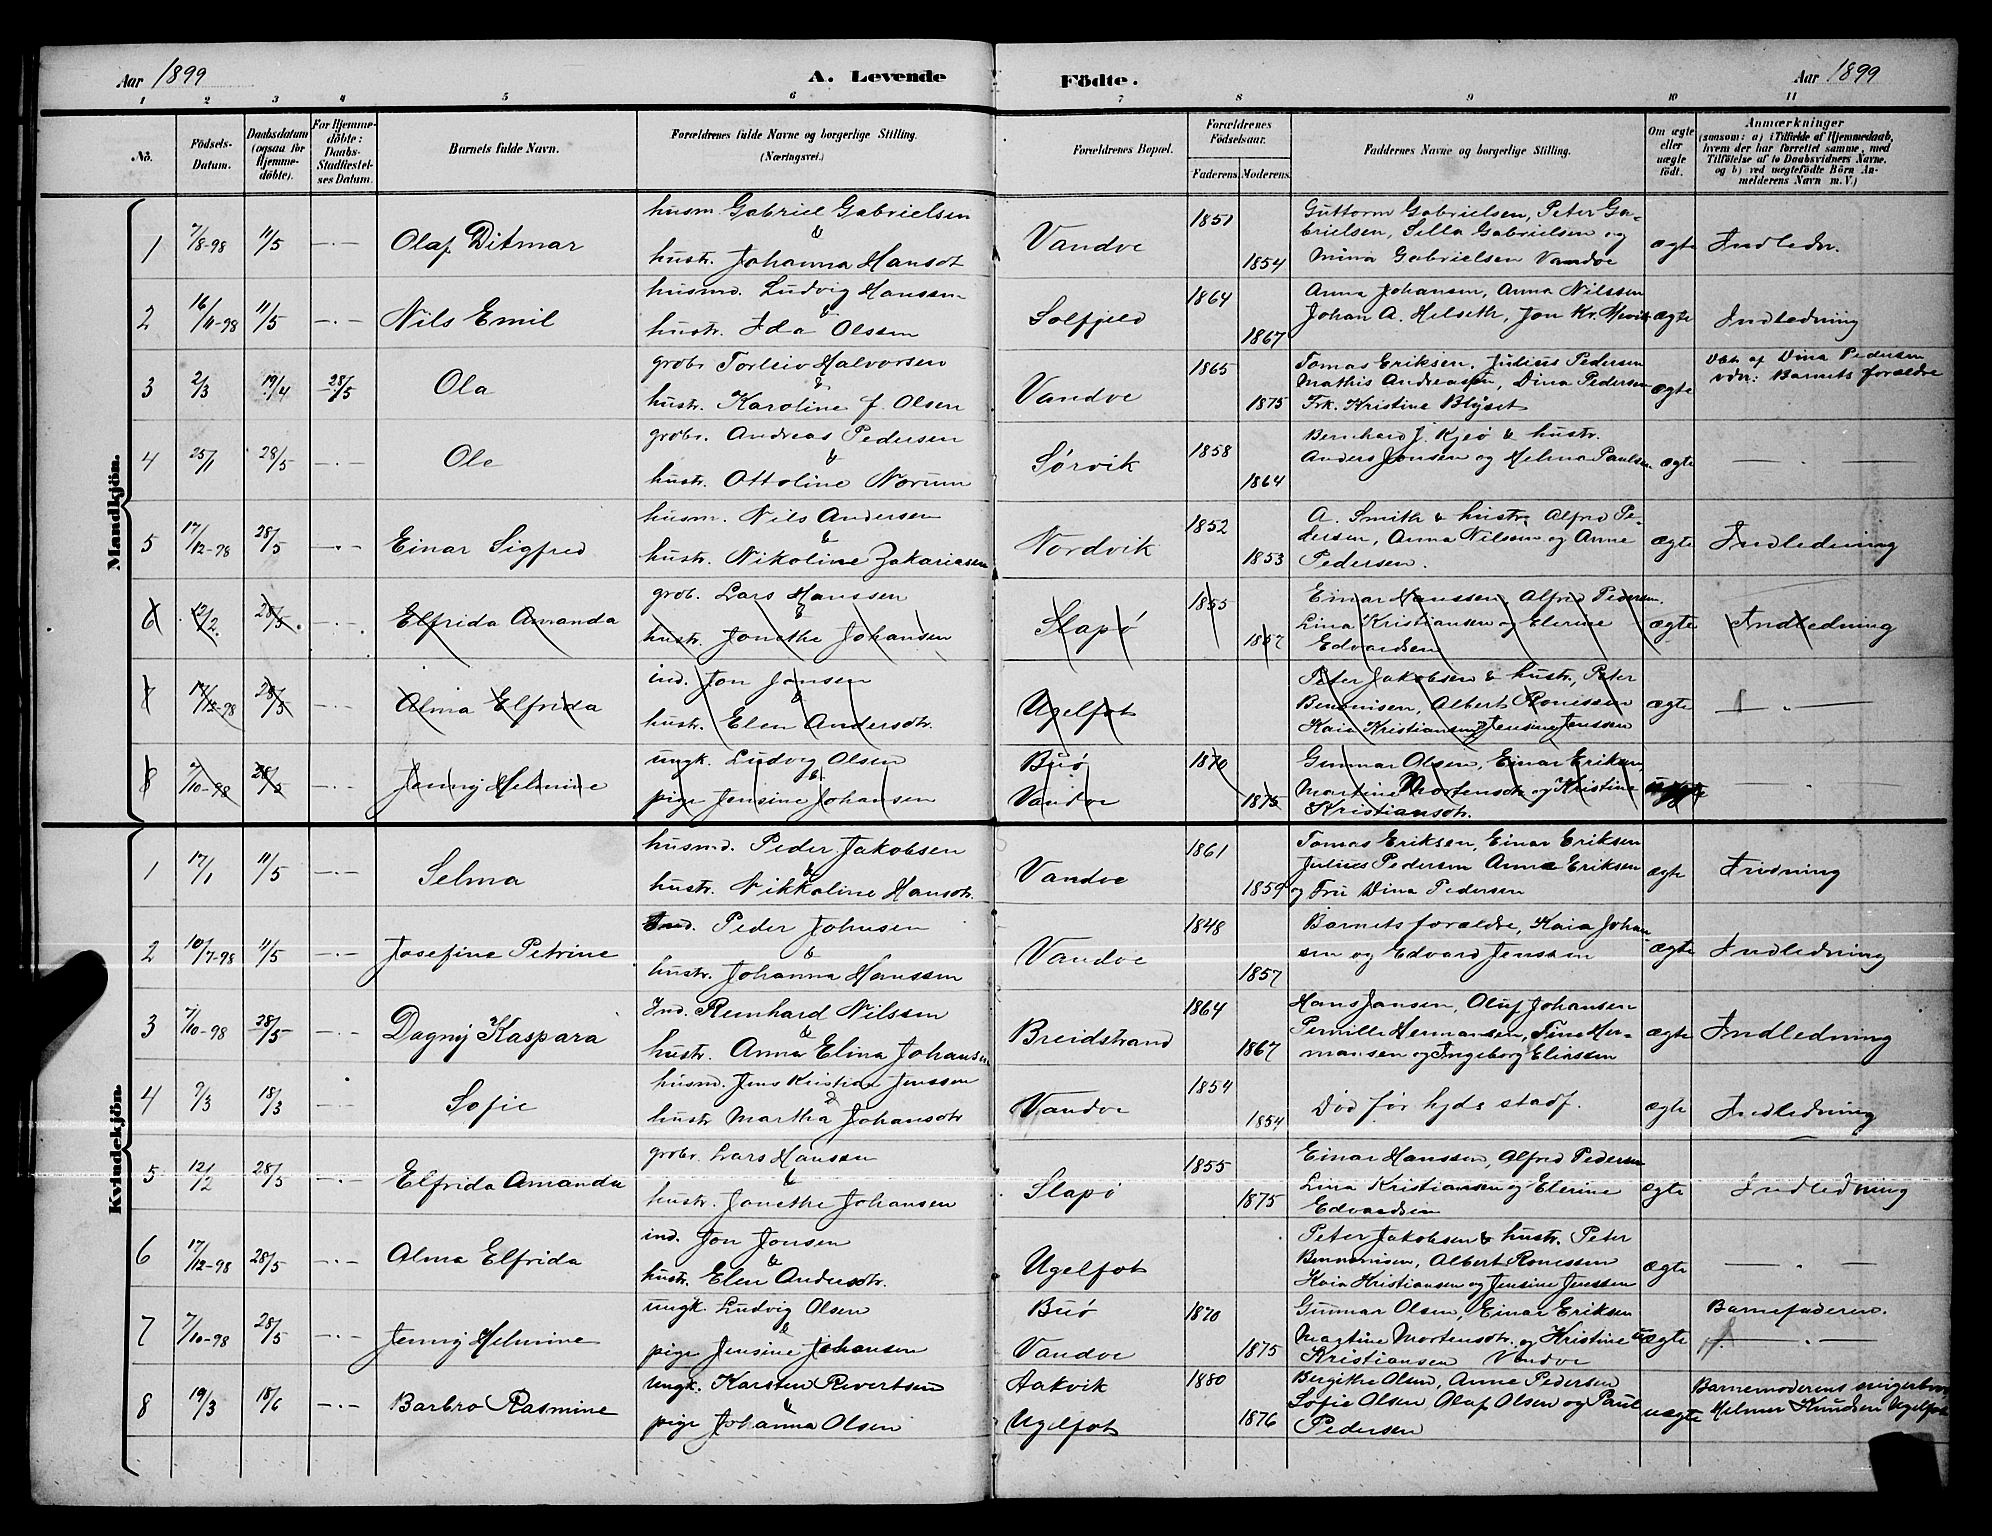 Aar 1899
A. Levende
Födte.
Aar 1899
1 2 3 4 5 6 7 8 9 10 11
No.
Födsels-Datum.
Daabsdatum (ogsaa for Hjemme-döbte).
For Hjemme-döbte: Daabs-Stadfæstel-ses Datum.
Barnets fulde Navn.
Forældrenes fulde Navne og borgerlige Stilling.
(Næringsvei.)
Forældrenes Bopæl.
Forældrenes Födselsaar.
Faderens. Moderens.
Faddernes Navne og borgerlige Stilling.
Om ægte eller uægte födt.
Anmærkninger
(saasom: a) i Tilfælde af Hjemmedaab,
hvem der har forrettet samme, med
Tilföielse af to Daabsvidners Navne,
og b) ved uægtefödte Börn An-
melderens Navn m. V.)
Mandkjön.
1 7/8-98 11/5 —·— Olaf Ditmar
husm. Gabriel Gabrielsen
&
hustr. Johanna Hansdt
Vandve 1851 1854
Guttorm Gabrielsen, Peter Ga-
brielsen, Sella Gabrielsen og
Mina Gabrielsen Vandve
ægte Indledn.
2 16/11-98 11/5 —·— Nils Emil
husmd. Ludvig Hanssen
&
hustr. Ida Olssen
Solfjeld 1864 1867
Anna Johansen, Anna Nilssen
Johan A. Helseth, Jon Kr. Mevik
ægte Indledning
3 2/3 19/4 28/5 Ola
grdbr Torleiv Halvorsen
&
hustr. Karoline J. Olsen
Vandve 1865 1875
Tomas Eriksen, Julius Pedersen
Mathis Andreasen, Dina Pedersen
Frk. Kristine Blyset
ægte Døbt af Dina Pedersen
vdn: Barnets foreldre
4 25/1 28/5 —·— Ole
grdbr. Andreas Pedersen
&
hustr. Ottoline Norum
Sørvik 1858 1864
Bernhard J. Kjeø & hustr.
Anders Jensen og Helma Paulsen
ægte — " —
5 17/12-98 28/5 —·— Einar Sigfred
husm. Nils Andersen
&
hustr. Nikoline Zakariasen
Nordvik 1852 1853
A. Smith & hustr, Alfred Pe-
dersen, Anna Nilssen og Anne
Pedersen.
ægte Indledning
6 12/2 28/5 —·— Elfrida Amanda
grdb. Lars Hanssen
&
hustr. Jonethe Johansen
Slapø 1855 1857
Einar Hanssen, Alfred Pedersen,
Lina Kristiansen og Elerine
Edvardsen
ægte Indledning
7 17/12-98 28/5 —·— Alma Elfrida
ind. Jon Jonsen
&
hustr. Elen Andersdtr.
Ugelfot
Peter Jakobsen & hustr, Peter
Bennonisen, Albert Ronissen
Kaia Kristiansen, Jensine Jenssen
ægte — " —
8 7/10-98 28/5 —·— Jenny Helmine
ungk. Ludvig Olsen
&
pige Jensine Johansen
Buø
Vandve 1870 1875
Gunnar Olsen, Einar Eriksen,
Martine Mortensdtr og Kristine
Kristiansdtr.
uægte — " —
Kvindekjön.
1 17/1 11/5 —·— Selma
husmd. Peder Jakobsen
&
hustr. Nikkoline Hansdtr.
Vandve 1861 1859
Tomas Eriksen, Einar Eriksen
Julius Pedersen Anna Eriksen
og Fru Dina Pedersen
ægte Indning
2 10/7-98 11/5 —·— Josefine Petrine
Ind. Peder Johnsen
&
hustr. Johanna Hanssen
Vandve 1848 1857
Barnets forældre, Kaia Johan
sen og Edvard Jenssen
ægte Indledning
3 7/10-98 28/5 —·— Dagny Kaspara
Ind. Reinhard Nilssen
&
hustr. Anna Elina Johansen
Breidstrand 1864 1867
Hans Jansen, Oluf Johansen
Pernille Hermansen, Tine Her-
mansen og Ingeborg Eliassen
ægte Indledning
4 9/3 18/3 —·— Sofie
husmd. Jens Kristian Jenssen
&
hustr Martha Johansdtr
Vandve 1854 1854
Død før kjds stadf.
ægte Indledning
5 12/2 28/5 —·— Elfrida Amanda
grdbr. Lars Hanssen
&
hustr. Jonethe Johansen
Slapø 1855 1875
Einar Hanssen, Alfred Pedersen
Lina Kristiansen og Elerine
Edvardsen
ægte Indledning
6 17/12-98 28/5 —·— Alma Elfrida
ind. Jon Jonsen
&
hustr. Elen Andersdtr.
Ugelfot
Peter Jakobsen & hustr. Peter
Bennonisen, Albert Ronissen
Kaia Kristiansen og Jensine Jenssen
ægte — " —
7 7/10-98 28/5 —·— Jenny Helmine
ungk. Ludvig Olsen
&
pige Jensine Johansen
Buø
Vandve 1870 1875
Gunnar Olsen, Einar Eriksen
Martine Mortensdtr. og Kristine
Kristiansen Vandve
uægte Barnefaderen.
— " —
8 19/3 18/6 —·— Barbro Rasmine
ungk. Karsten Revertsen
&
pige Johanna Olsen
Aakvik
Ugelfot 1880 1876
Bergithe Olsen, Anne Pedersen
Sofie Olsen Olaf Olsen og Paul
Pedersen
uægte Barnemoderens svigerbror
Helmer Knudsen Ugelfot